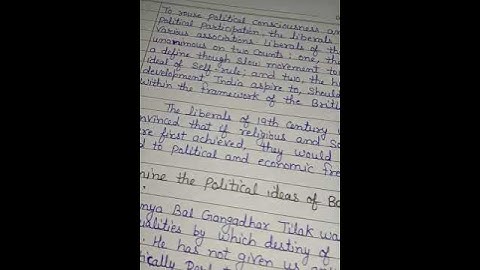 To rouse political consciousness an
political participation, the liberals
various associations liberals of the
unanimous on two counts: one, th
a define though slow movement to
ideal of self-rule; and two, the hi
development India aspire to, should
within the framework of the Briti
The liberals of 19th Century w
nvinced that if religious and So
re first achieved, they would
d to political and economic fre
mine the political ideas of Ba
nya Bal Gangadhar Tilak wa
ualities by which destiny of
He has not given us
tically